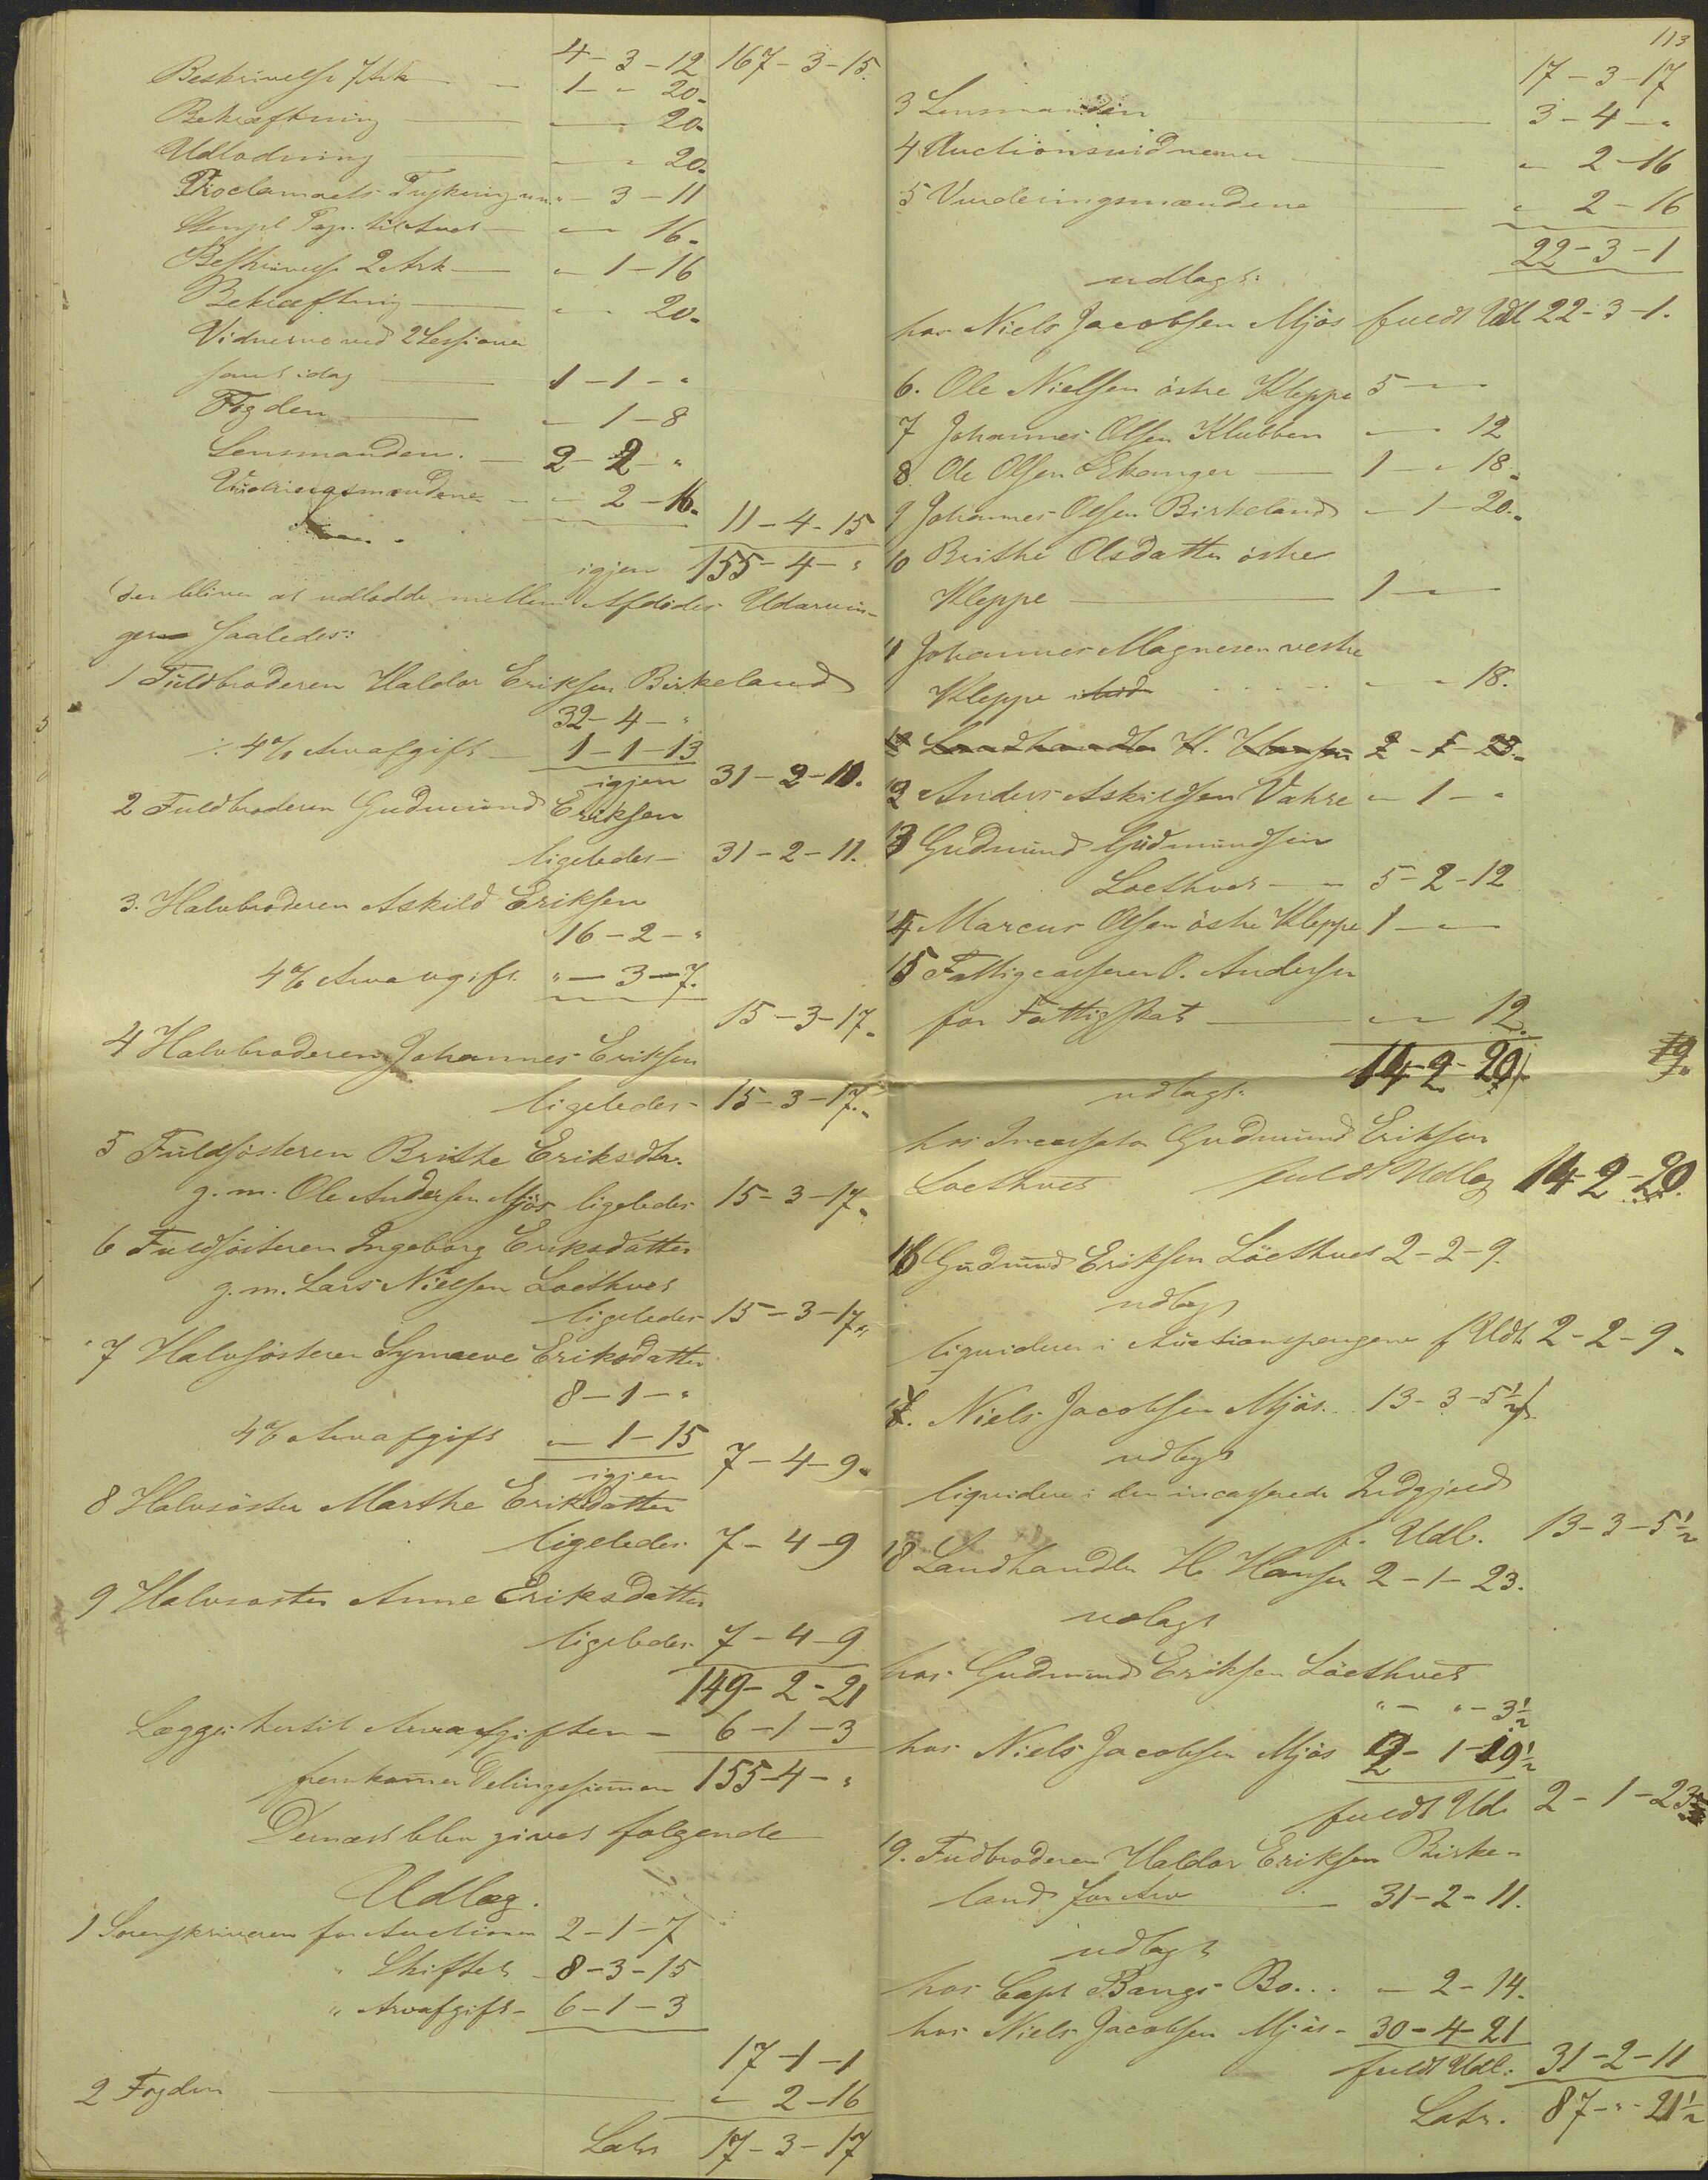 4-3-12 167-3-15.
Beskrivelse 7 Ark 1 - " 20.
Bekræftning " - " 20.
Udlodning " - " 20.
Proclamaets Trykning m.m. " - 3-11
Stempl. Pap. til Arvs " - " 16.
Beskrivelse 2 Ark " - 1-16
Bekræftning " - " 20.
Vidnerne ved 2 Sessioner
samt idag 1-1-"
Fogden " - 1-8
Lensmanden. 2-2-"
Vurderingsmændene " - 2-16. 11-4-15
igjen 155-4-"
der bliver at udlodde mellem Afdødes Udarvin-
ger saaledes:
1 Fuldbroderen Haldor Eriksen Birkeland
32-4-"
÷ 4% Arvafgift 1-1-13
igjen 31-2-11.
2 Fuldbroderen Gudmund Eriksen
ligeledes 31-2-11.
3. Halvbroderen Askild Eriksen
16-2-"
4% Arveavgift " - 3-7.
15-3-17.
4 Halvbroderen Johannes Eriksen
ligeledes 15-3-17.
5 Fuldsösteren Brithe Eriksdtr.
g.m. Ole Andersen Mjös ligeledes 15-3-17.
6 Fuldsösteren Ingeborg Eriksdatter
g.m. Lars Nielsen Loethvet
ligeledes 15-3-17.
7 Halvsösteren Synneve Eriksdatter
8-1-"
4% Arvafgift " - 1-15
igjen 7-4-9.
8 Halvsöster Marthe Eriksdatter
ligeledes 7-4-9
9 Halvsöster Anne Eriksdatter
ligeledes 7-4-9
149-2-21
Lægges hertil Arveafgiften 6-1-3
fremkommer Delingssummen 155-4-"
Dernæst blev givet følgende
Udlæg.
1 Sorenskriveren for Auctionen 2-1-7
" Skiftet 8-3-15
" Arvafgift 6-1-3
17-1-1
2 Fogden " 2-16
Latus 17-3-17
113
17-3-17
3 Lensmanden 3-4-"
4 Auctionsvidnerne " 2-16
5 Vurderingsmændene " 2-16
22-3-1
udlagt:
hos Niels Jacobsen Mjös fuldt Udl 22-3-1.
6. Ole Nielsen östre Kleppe 5 - " - "
7 Johannes Olsen Klubben " - " 12
8. Ole Olsen Ekanger 1 - " 18.
9 Johannes Olsen Birkeland " - 1-20.
10 Brithe Olsdatter östre
Kleppe 1 - " - "
11 Johannes Magnesen vestre
Kleppe " - " 18.
12 Landhandler H. Hansen 2-1-23.
12 Anders Askildsen Vahre " - 1 - "
13 Gudmund Gudmundsen
Loethvet 5-2-12
14 Marcus Olsen östre Kleppe 1 - " - "
15 Fattigcasserer O. Andersen
for Fattigskat " - " 12.
14-2-20
udlagt:
hos Incassator Gudmund Eriksen
Loethvet fuldt Udlæg 14-2-20.
16 Gudmund Eriksen Löethvet 2-2-9.
udlagt
liqviderer i Auctionspengene f Udl. 2-2-9.
17. Niels Jacobsen Mjös 13-3-5½
udlagt
liqviderer i den incasserede Indgjæld
f. Udl. 13-3-5½
18 Landhandler H. Hansen 2-1-23.
udlagt
hos Gudmund Eriksen Löethvet
" - " - 3½
hos Niels Jacobsen Mjös 2-1-19½
fuldt Udl. 2-1-23
19. Fudbroderen Haldor Eriksen Birke-
land for Arv 31-2-11.
udlagt
hos Capt Bangs Bo... " - 2-14.
hos Niels Jacobsen Mjös 30-4-21
fuldt Udl. 31-2-11
Lats. 87-"-21½